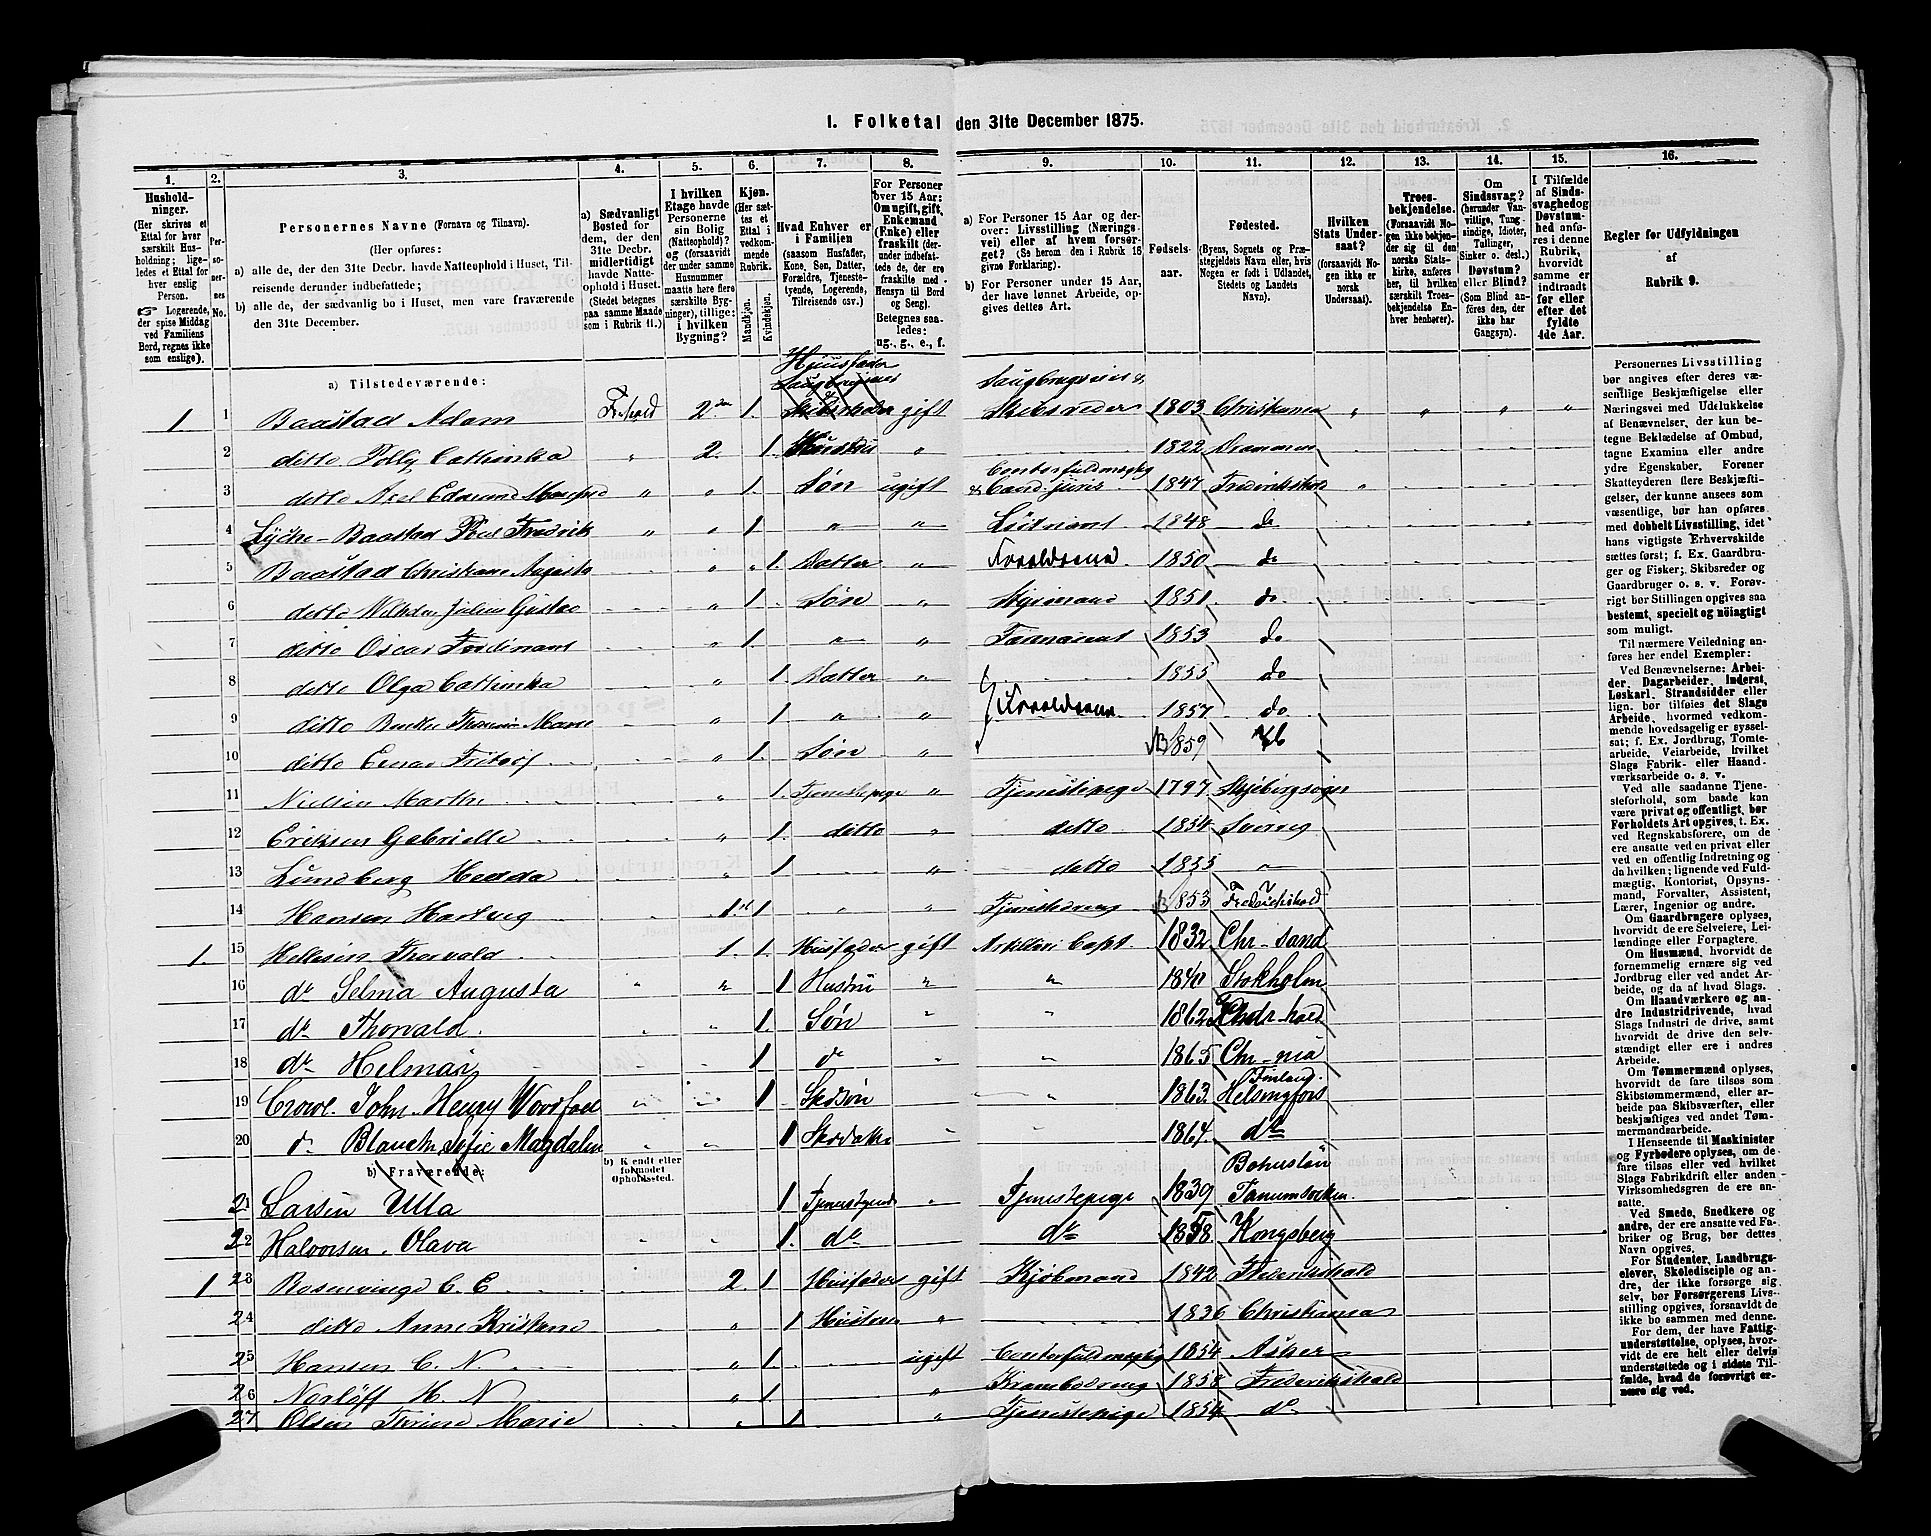 1. Folketal den 31te December 1875.
1. 2. 3. 4. 5. 6. 7. 8. 9. 10. 11. 12. 13. 14. 15. 16.
Hushold-
ninger.
(Her skrives et
Ettal for hver
særskilt Hus-
holdning; lige-
ledes et Ettal for
hver enslig
Person.
☞ Logerende,
der spise Middag
ved Familiens
Bord, regnes ikke
som enslige).
Per-
so-
ner-
nes
No.
Personernes Navne (Fornavn og Tilnavn).
(Her opføres:
a) alle de, der den 31te Decbr. havde Natteophold i Huset, Til-
reisende derunder indbefattede;
b) alle de, der sædvanlig bo i Huset, men vare fraværende
den 31te December.
a) Sædvanligt
Bosted for
dem, der den
31te Decbr.
midlertidigt
havde Natte-
ophold i Huset.
(Stedet betegnes
paa samme Maade
som i Rubrik 11.)
I hvilken
Etage havde
Personerne
sin Bolig
(Natteophold)?
og (forsaavidt
der under samme
Husnummer
maatte høre flere
særskilte Byg-
ninger), tillige:
i hvilken
Bygning?
Kjøn.
(Her sæt-
tes et
Ettal i
vedkom-
mende
Rubrik.
Mandkjøn.
Kvindekjøn.
Hvad Enhver er
i Familien
(saasom Husfader,
Kone, Søn, Datter,
Forældre, Tjeneste-
tyende, Logerende,
Tilreisende osv.)
For Personer
over 15 Aar:
Om ugift, gift,
Enkemand
(Enke) eller
fraskilt (der-
under indbefat-
tede de, der ere
fraskilte med
Hensyn til Bord
og Seng).
Betegnes saa-
ledes:
ug., g., e., f.
a) For Personer 15 Aar og der-
over: Livsstilling (Nærings-
vei) eller af hvem forsør-
get? (Se herom den i Rubrik 16
givne Forklaring).
b) For Personer under 15 Aar,
der have lønnet Arbeide, op-
gives dettes Art.
Fødsels-
aar.
Fødested.
(Byens, Sognets og Præ-
stegjeldets Navn, eller hvis
Nogen er født i Udlandet,
Stedets og Landets
Navn).
Hvilken
Stats Under-
saat?
(forsaavidt No-
gen ikke er
norsk
Undersaat).
Troes-
bekjendelse.
(Forsaavidt No-
gen ikke bekjen-
der sig til den
norske Stats-
kirke, anføres
her, til hvilken
særskilt Troes-
bekjendelse En-
hver henhører).
Om
Sindssvag?
(herunder Van-
vittige, Tung-
sindige, Idioter,
Tullinger,
Sinker o. desl.)
Døvstum?
eller Blind?
(Som Blind an-
føres den, der
ikke har
Gangsyn).
I Tilfælde
af Sinds-
svaghed og
Døvstum-
hed anføres
i denne
Rubrik,
hvorvidt
samme er
indtraadt
før eller
efter det
fyldte
4de Aar.
Regler for Udfyldningen
af
Rubrik 9.
a) Tilstedeværende:
Huusfader
Saugbrugseier &
1 1 Baastad Adam Fr.hald 2den 1. gift Skibsreder 1803 Christiania
2 ditto Polly Cathinka " 2. 1. Hustru " 1822 Drammen
Contorfuldmægtig
3 ditto Axel Edmund " " 1. Søn ugift & Cand. juris 1847 Frederikshald
4 Lyche-Baastad Poul Fredrik " " 1 " " Løitnant 1848 do
5 Baastad Christiane Augusta " " 1. Datter " Forældrene 1850 do
6 ditto Wilhelm Julius Gustav " 1. Søn " Styrmand 1851 do
7 ditto Oscar Ferdinant " 1. " " 1853 do
8 ditto Olga Cathinka " 1. Datter " 1855 do
9 ditto Marie " 1. " " Forældrene 1857 do
10 ditto Einar Fritjof " 1. Søn " 1859
11 Nielsen Marthe " 1. Tjenestepige " Tjenestepige 1797 Skjebergsogn
12 Eriksen Gabrielle " 1. ditto " ditto 1854 Sverrig
13 Lundberg Hedda " 1 " ditto 1855 "
14 Hansen Hartvig 1st 1 " " Tjenestedreng 1853 Fredrikshald
1. 15 Hellesen Thorvald 1. 1. Huusfader gift Artilleri Capt. 1832 Chr.sand
16 do Selma Augusta " " 1 Hustru " " 1840 Stokholm
17 do Thorvald. " " 1. Søn " " 1862 Fredr.hald
18 do Helmar 1 do " " 1865 Chr.nia
Finland.
19 Crowe. John Henry Woodfall " " 1 Stedsøn " 1863. Helsingfors
20 do Blanch Sofie Magdalene " " 1 Stedatter " " 1864. do
b) Fraværende:
b) Kjendt eller
formodet
Opholdssted.
Bohuslän
21 Larsen Ulla 1 Tjenestepige " Tjenestepige 1839 Tanumsocken
22 Halvorsen. Olava " " 1. do " do 1858. Kongsberg
1 23 Rosenvinge C. E. 2 1 Husfader gift Kjøbmand 1842 Frederikshald
24 ditto Anne Kristine " 1 Hustru " 1836 Christiania
25 Hansen C. N. " 1. ugift Contorfuldmægtig 1854 Asker
26 Narløff H. N " 1. " Krambodreng 1858 Frederikshald
27 Olsen Marie " 1 " Tjenestepige 1854 do
Personernes Livsstilling
bør angives efter deres væ-
sentlige Beskjæftigelse eller
Næringsvei med Udelukkelse
af Benævnelser, der kun be-
tegne Beklædelse af Ombud,
tagne Examina eller andre
ydre Egenskaber. Forener
Skatteyderen flere Beskjæfti-
gelser, der kunne ansees som
væsentlige, bør han opføres
med dobbelt Livsstilling, idet
hans vigtigste Erhvervskilde
sættes først; f. Ex. Gaardbru-
ger og Fisker; Skibsreder og
Gaardbruger o. s. v. Forøv-
rigt bør Stillingen opgives saa
bestemt, specielt og nöiagtigt
som muligt.
Til nærmere Veiledning an-
føres her endel Exempler:
Ved Benævnelserne: Arbei-
der, Dagarbeider, Inderst,
Løskarl, Strandsidder eller
lign. bør tilføies det Slags
Arbeide, hvormed vedkom-
mende hovedsagelig er syssel-
sat; f. Ex. Jordbrug, Tomte-
arbeide, Veiarbeide, hvilket
Slags Fabrik- eller Haand-
værksarbeide o. s. v.
Ved alle saadanne Tjene-
steforhold, som baade kan
være privat og offentligt, bør
Forholdets Art opgives, t. Ex.
ved Regnskabsførere, om de
ere ansatte ved en privat eller
ved en offentlig Indretning og
da hvilken; lignende ved Fuld-
mægtig, Kontorist, Opsyns-
mand, Forvalter, Assistent,
Lærer, Ingeniør og andre.
Om Gaardbrugere oplyses,
hvorvidt de ere Selveiere, Lei-
lændinge eller Forpagtere.
Om Husmænd, hvorvidt de
fornemmelig ernære sig ved
Jordbrug eller ved andet Ar-
beide, og da af hvad Slags.
Om Haandværkere og an-
dre Industridrivende, hvad
Slags Industri de drive, samt
hvorvidt de drive den selv-
stændigt eller ere i andres
Arbeide.
Om Tømmermænd oplyses,
hvorvidt de fare tilsøs som
Skibstømmermænd, eller ar-
beide paa Skibsværfter, eller
beskjæftiges ved andet Tøm-
mermandsarbeide.
I Henseende til Maskinister
og Fyrbødere oplyses, om de
fare tilsøs eller ved hvilket
Slags Fabrikdrift eller anden
Virksomhedsgren de ere an-
satte.
Ved Smede, Snedkere og
andre, der ere ansatte ved Fa-
briker og Brug, bør dettes
Navn opgives.
For Studenter, Landbrugs-
elever, Skoledisciple og an-
dre, der ikke forsørge sig
selv, bør Forsørgerens Livs-
stilling opgives, forsaavidt de
ikke bo sammen med denne.
For dem, der have Fattig-
understøttelse, oplyses, hvor-
vidt de ere helt eller delvis
understøttede og i sidste Til-
fælde, hvad de forøvrigt er-
nære sig ved.